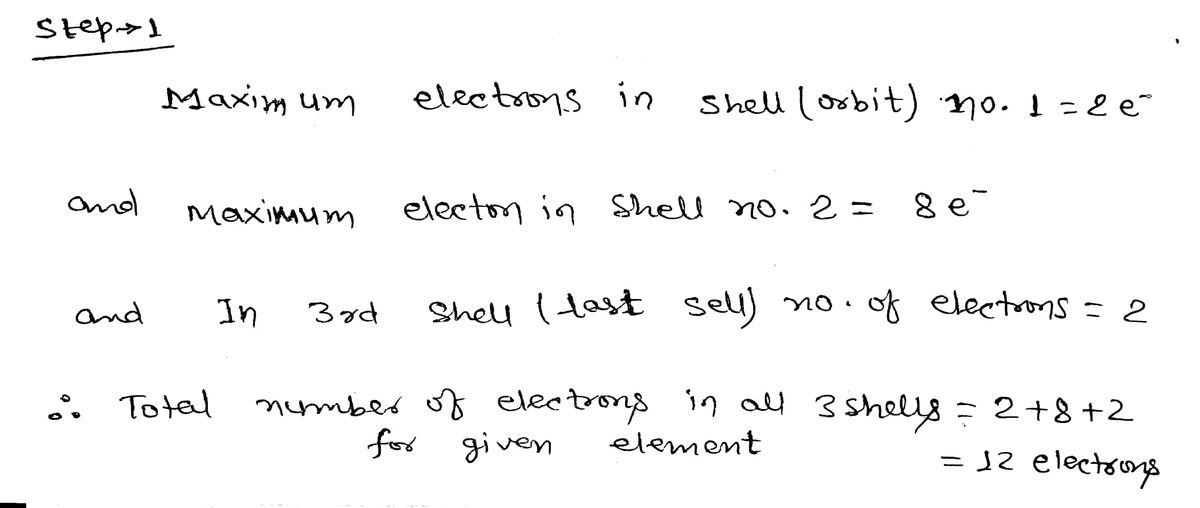 Step→1
Maximum electrons in shell (orbit) no. 1 = 2 e⁻
and maximum electon in shell no. 2 = 8 e⁻
and In 3rd shell (last sell) no. of electrons = 2
∴ Total number of electrons in all 3 shells = 2+8+2
for given element = 12 electrons